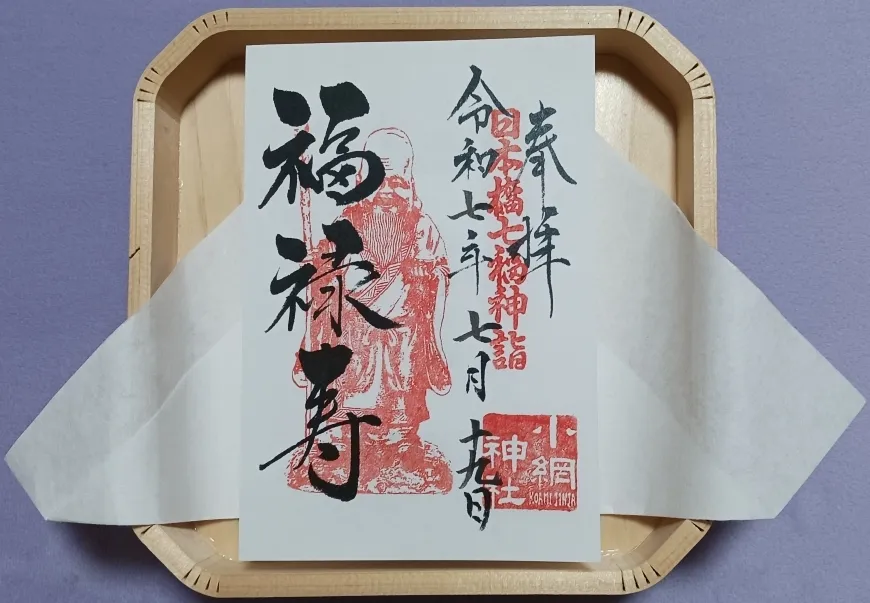 奉拝
日本橋七福神詣
令和七年七月十九日
福禄寿
小網
神社
KOAMI JINJA